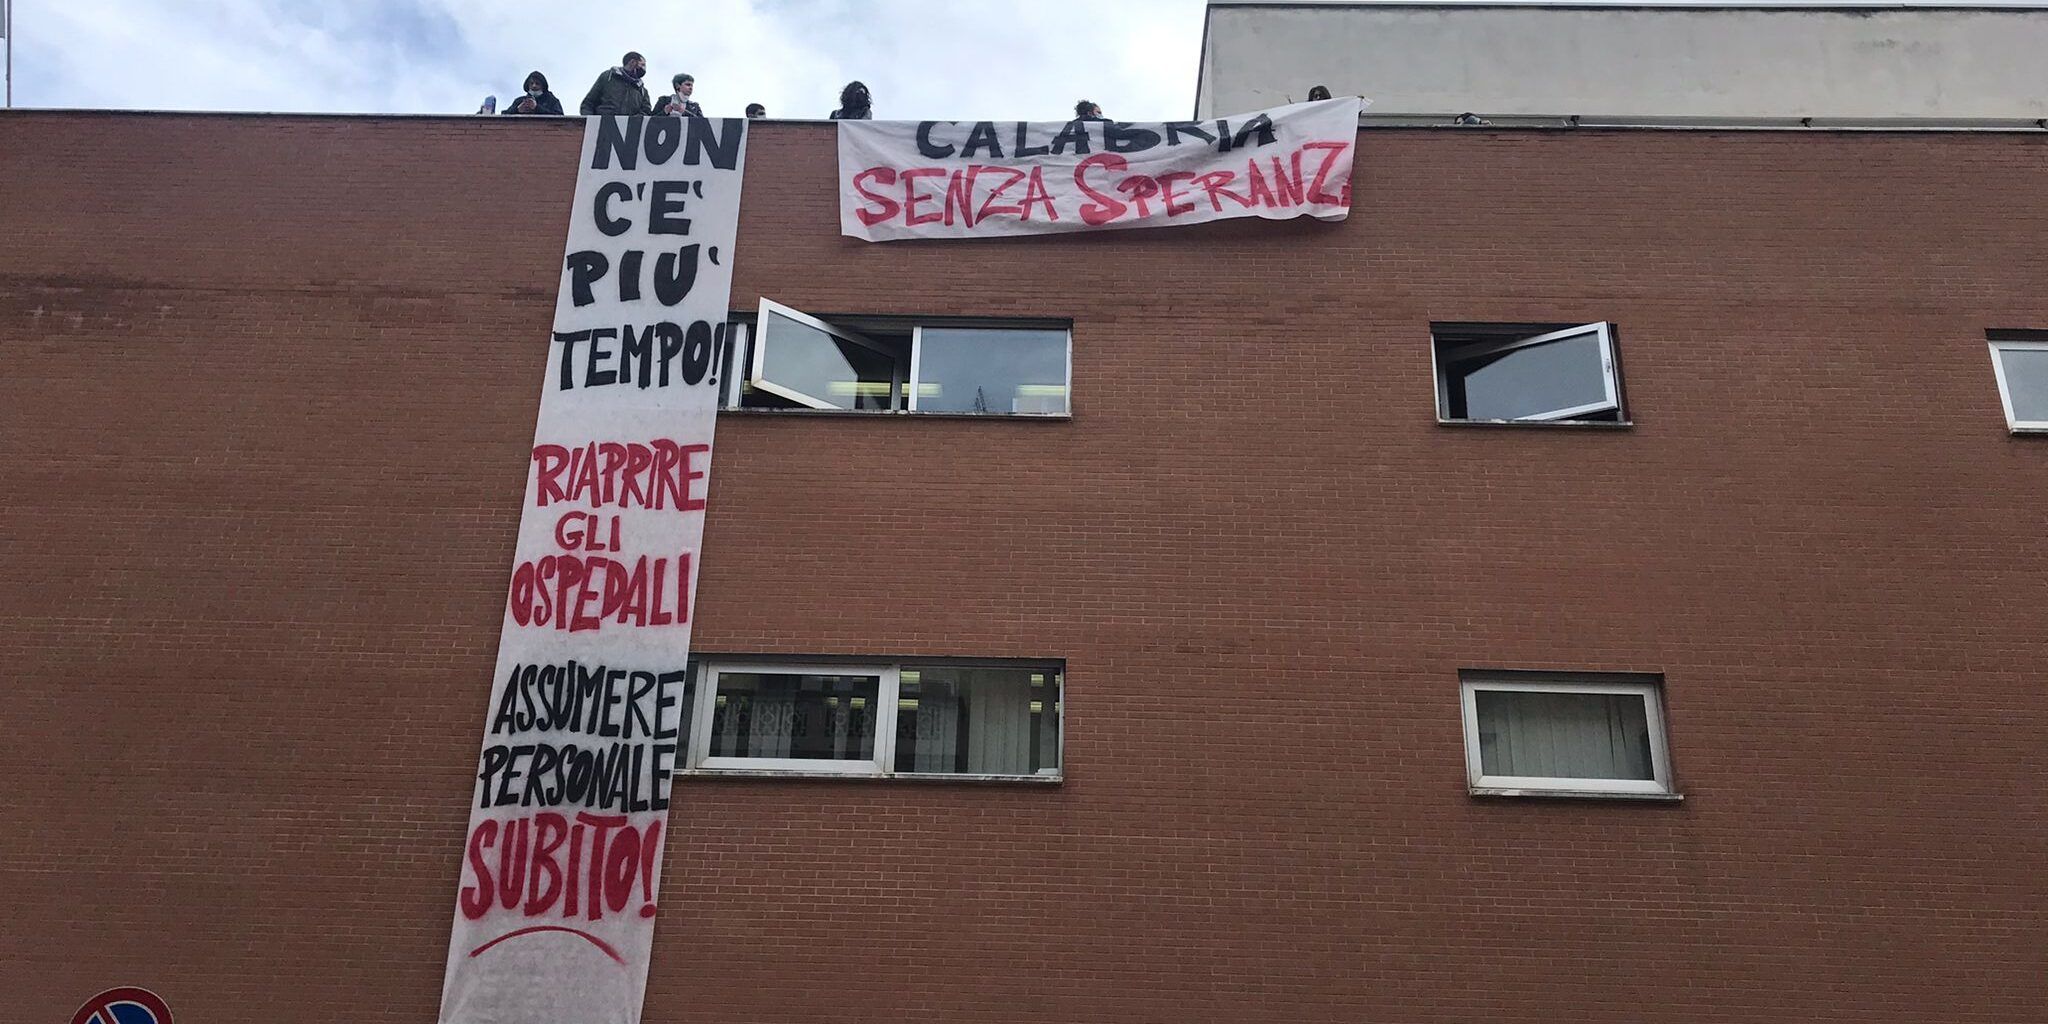 NON
C'E'
PIU'
TEMPO!
RIAPRIRE
GLI
OSPEDALI
ASSUMERE
PERSONALE
SUBITO!
CALABRIA
SENZA SPERANZ